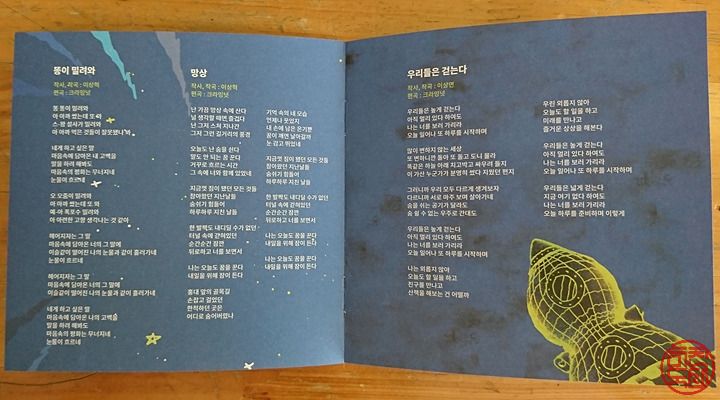 똥이 밀려와
작사, 작곡 : 이상혁
편곡 : 크라잉넛
똥 똥이 밀려와
아 아까 쌌는데 또 와
스·쫙 설사가 밀려와
아 아까 먹은 것들이 잘못됐나 봐
네게 하고 싶은 말
마음속에 담아온 내 고백을
말을 하려 해봐도
마음속의 평화는 무너지네
눈물이 흐르네
오 오줌이 밀려와
아 아까 쌌는데 또 와
예·아 폭포수 밀려와
아 아련한 고향 생각나는 것 같아
헤어지자는 그 말
마음속에 담아온 너의 그 말에
이슬같이 떨어진 나의 눈물과 같이 흘러가네
눈물이 흐르네
헤어지자는 그 말
마음속에 담아온 너의 그 말에
이슬같이 떨어진 나의 눈물과 같이 흘러가네
네게 하고 싶은 말
마음속에 담아온 나의 고백을
말을 하려 해봐도
마음속의 평화는 무너지네
눈물이 흐르네
망상
작사, 작곡 : 이상혁
편곡 : 크라잉넛
난 가끔 망상 속에 산다
널 생각할 때면 즐겁다
난 그저 스쳐 지나간
그저 그런 길거리의 풍경
오늘도 난 숨을 쉰다
말도 안 되는 꿈 꾼다
거꾸로 흐르는 시간
그 속에 너와 함께 있었네
지금껏 지쳐 왔던 모든 것들
참아왔던 지난날들
숨쉬기 힘들어
하루하루 지친 날들
한 발짝도 내디딜 수가 없던
터널 속에 갇혀있던
순간순간 잠깐
뒤로하고 너를 보면서
나는 오늘도 꿈을 꾼다
내일을 위해 잠이 든다
홍대 앞의 골목길
손잡고 걸었던
한적하던 곳은
어디로 숨어버렸나
기억 속의 네 모습
언제나 웃었지
내 손에 남은 온기뿐
꿈이 깨면 날아갈까
눈 감고 뛰었네
지금껏 지쳐 왔던 모든 것들
참아왔던 지난날들
숨쉬기 힘들어
하루하루 지친 날들
한 발짝도 내디딜 수가 없던
터널 속에 갇혀있던
순간순간 잠깐
뒤로하고 너를 보면서
나는 오늘도 꿈을 꾼다
내일을 위해 잠이 든다
나는 오늘도 꿈을 꾼다
내일을 위해 잠이 든다
우리들은 걷는다
작사, 작곡 : 이상면
편곡 : 크라잉넛
우리들은 높게 걷는다
아직 멀리 있다 하여도
나는 너를 보러 가리라
오늘 일어나 또 하루를 시작하며
많이 변하지 않는 세상
또 변하니까 돌아 또 돌고 도니 몰라
똑같은 하늘 아래 지고박고 싸우려 들지
이 가신 누군가가 분명해 썼다 지웠던 편지
그러니까 우리 모두 다르게 생겨보자
다르니까 서로 마주 보며 살아가네
숨을 쉬는 공기가 달라도
숨 쉴 수 없는 우주로 간대도
우리들은 높게 걷는다
아직 멀리 있다 하여도
나는 너를 보러 가리라
오늘 일어나 또 하루를 시작하며
나는 외롭지 않아
오늘도 할 일을 하고
친구를 만나고
산책을 해보는 건 어떨까
우린 외롭지 않아
오늘도 할 일을 하고
미래를 만나고
즐거운 상상을 해본다
우리들은 높게 걷는다
아직 멀리 있다 하여도
나는 너를 보러 가리라
오늘 일어나 또 하루를 시작하며
우리들은 넓게 걷는다
지금 여기 없다 하여도
나는 너를 보러 가리라
오늘 하루를 준비하며 이렇게